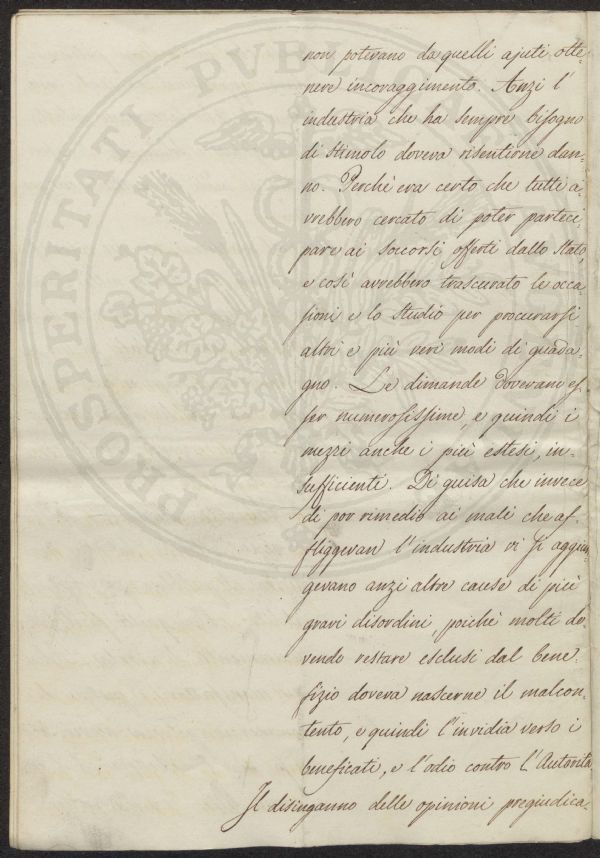 non potevano da quelli ajuti otte-
nere incoraggimento. Anzi l'
industria che ha sempre bisogno
di stimolo doveva risentirne dan-
no. Perchè era certo che tutti a-
vrebbero cercato di poter parteci-
pare ai soccorsi offerti dallo Stato,
e così avrebbero trascurato le occa-
sioni e lo studio per procurarsi
altri e più veri modi di guada-
gno. Le dimande dovevano es-
ser numerosissime, e quindi i
mezzi anche i più estesi, in-
sufficienti. Di guisa che invece
di por rimedio ai mali che af-
fliggevan l'industria vi si aggiun-
gevano anzi altre cause di più
gravi disordini, poichè molti do-
vendo restare esclusi dal bene-
fizio doveva nascerne il malcon-
tento, e quindi l'invidia verso i
beneficati, e l'odio contro l'Autorità
Il disinganno delle opinioni pregiudica-
PROSPERITATI PVBLICA